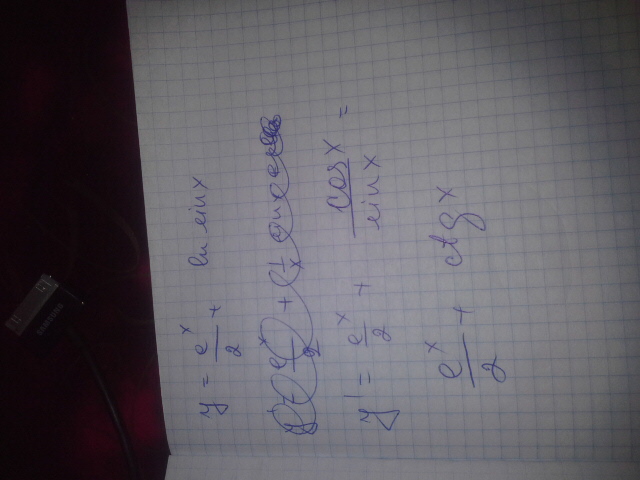 y = e^x/2 + ln sin x
y' = e^x/2 + cos x/sin x =
e^x/2 + ctg x
SAMSUNG